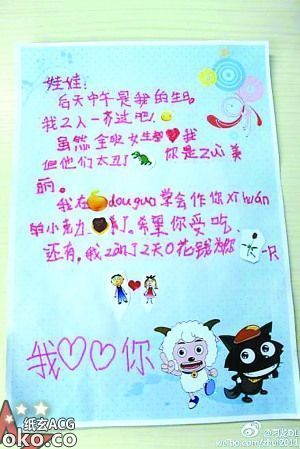 娃娃:
后天中午是我的生日,
我2人一齐过吧!
虽然全班女生都❤我
但他们太丑了 你是zui美
丽。
我在 douguo 学会作你xǐ huán
克力 了。希望你爱吃
还有,我 了2天0花钱为你 一只
我♡♡你
纸玄ACG
oko.co
weibo.com/zhui2011